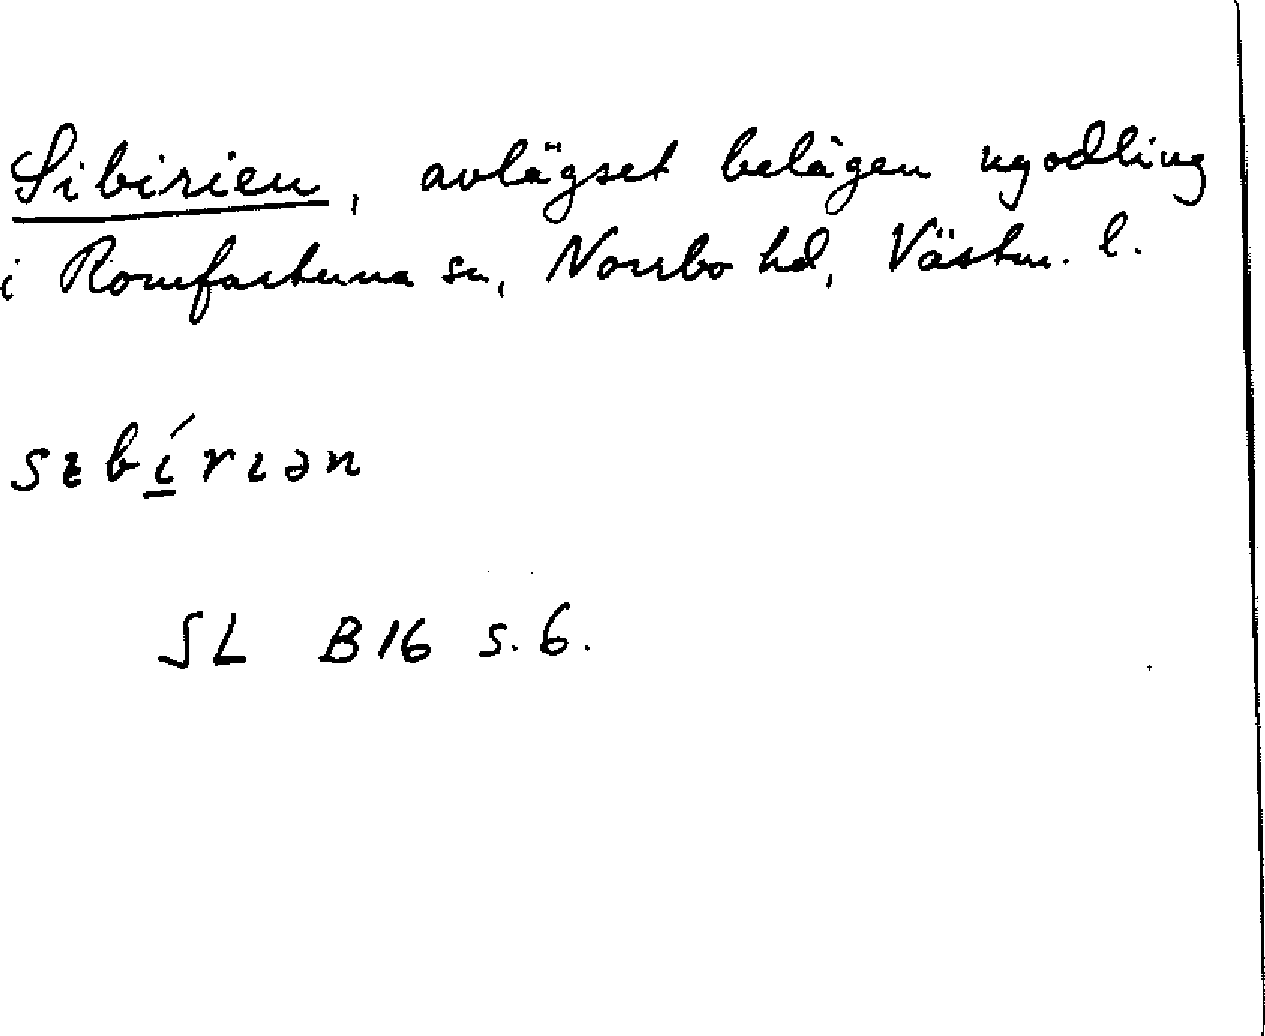 Sibirien, avlägset belägen nyodling
i Romfartuna sn, Norrbo hd, Västm. l.
sɪbí̲rɪən
SL B16 s. 6.